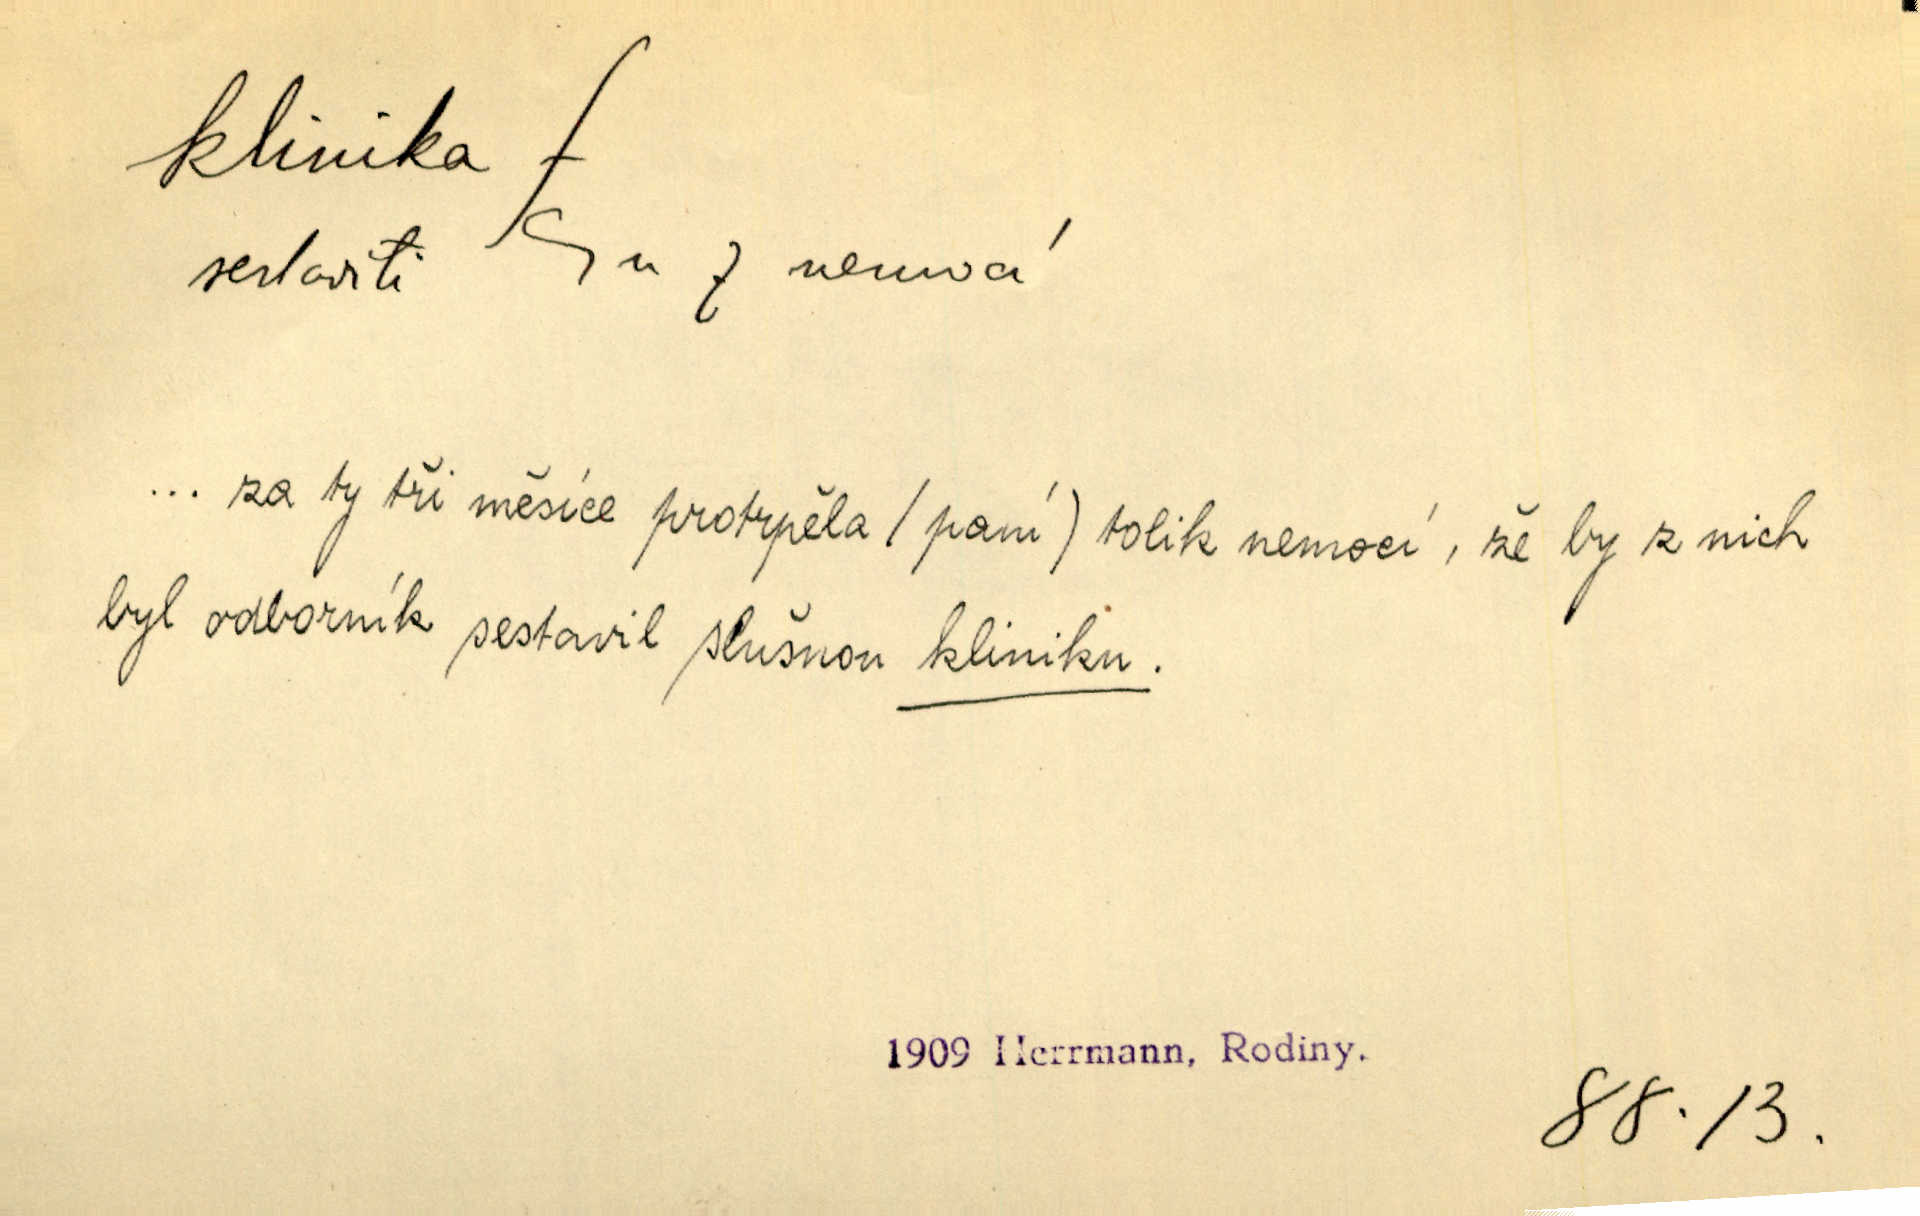 klinika f
sestaviti ~u z nemocí
... za ty tři měsíce protrpěla (paní) tolik nemocí, že by z nich
byl odborník sestavil slušnou kliniku.
1909 Herrmann, Rodiny.
88. 13.